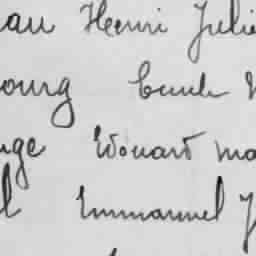 au Henri Julie
ourg Emile
uge Edouard ma
l Emmanuel J